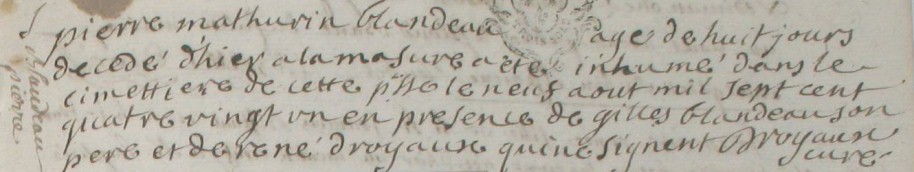 S
blandeau
pierre
pierre mathurin blandeau agé de huit jours
decedé d'hier a la masure a eté inhumé dans le
cimettiere de cette psse le neuf aout mil sept cent
quatre vingt un en presence de gilles blandeau son
pere et de rené droyaux qui ne signent Droyaux
curé